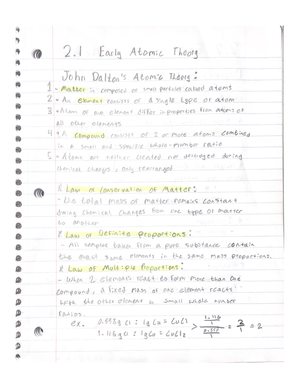 2.1 Early Atomic Theory
John Dalton's Atomic Theory:
1 - Matter is composed of small particles called atoms
2 - An element consists of a single type of atom
3 - Atom of one element differ in properties from atoms of
all other elements
4 - A compound consists of 2 or more atoms combined
in a small and specific whole-number ratio
5 - Atoms are neither created nor destroyed during
chemical changes, only rearranged
Law of Conservation of Matter:
- the total mass of matter remains constant
during chemical changes from one type of matter
to another
Law of Definite Proportions:
- All samples taken from a pure substance contain
the exact same elements in the same mass proportions.
Law of Multiple Proportions:
- When 2 elements react to form more than one
compound, a fixed mass of one element reacts
with the other element in small whole number
ratios.
ex. 0.558g Cl : 1g Cu = CuCl
1.116g Cl : 1g Cu = CuCl2
> 1.116 / 0.558 = 2